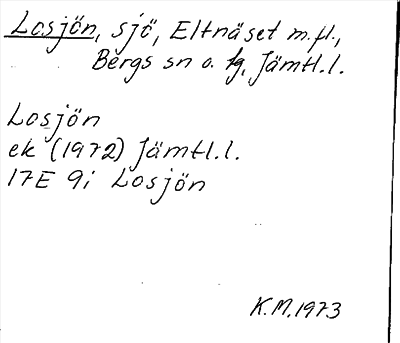 Losjön, sjö, Eltnäset m.fl.,
Bergs sn o. tg, Jämtl.l.
Losjön
ek (1972) Jämtl.l.
17E 9i Losjön
K.M.1973